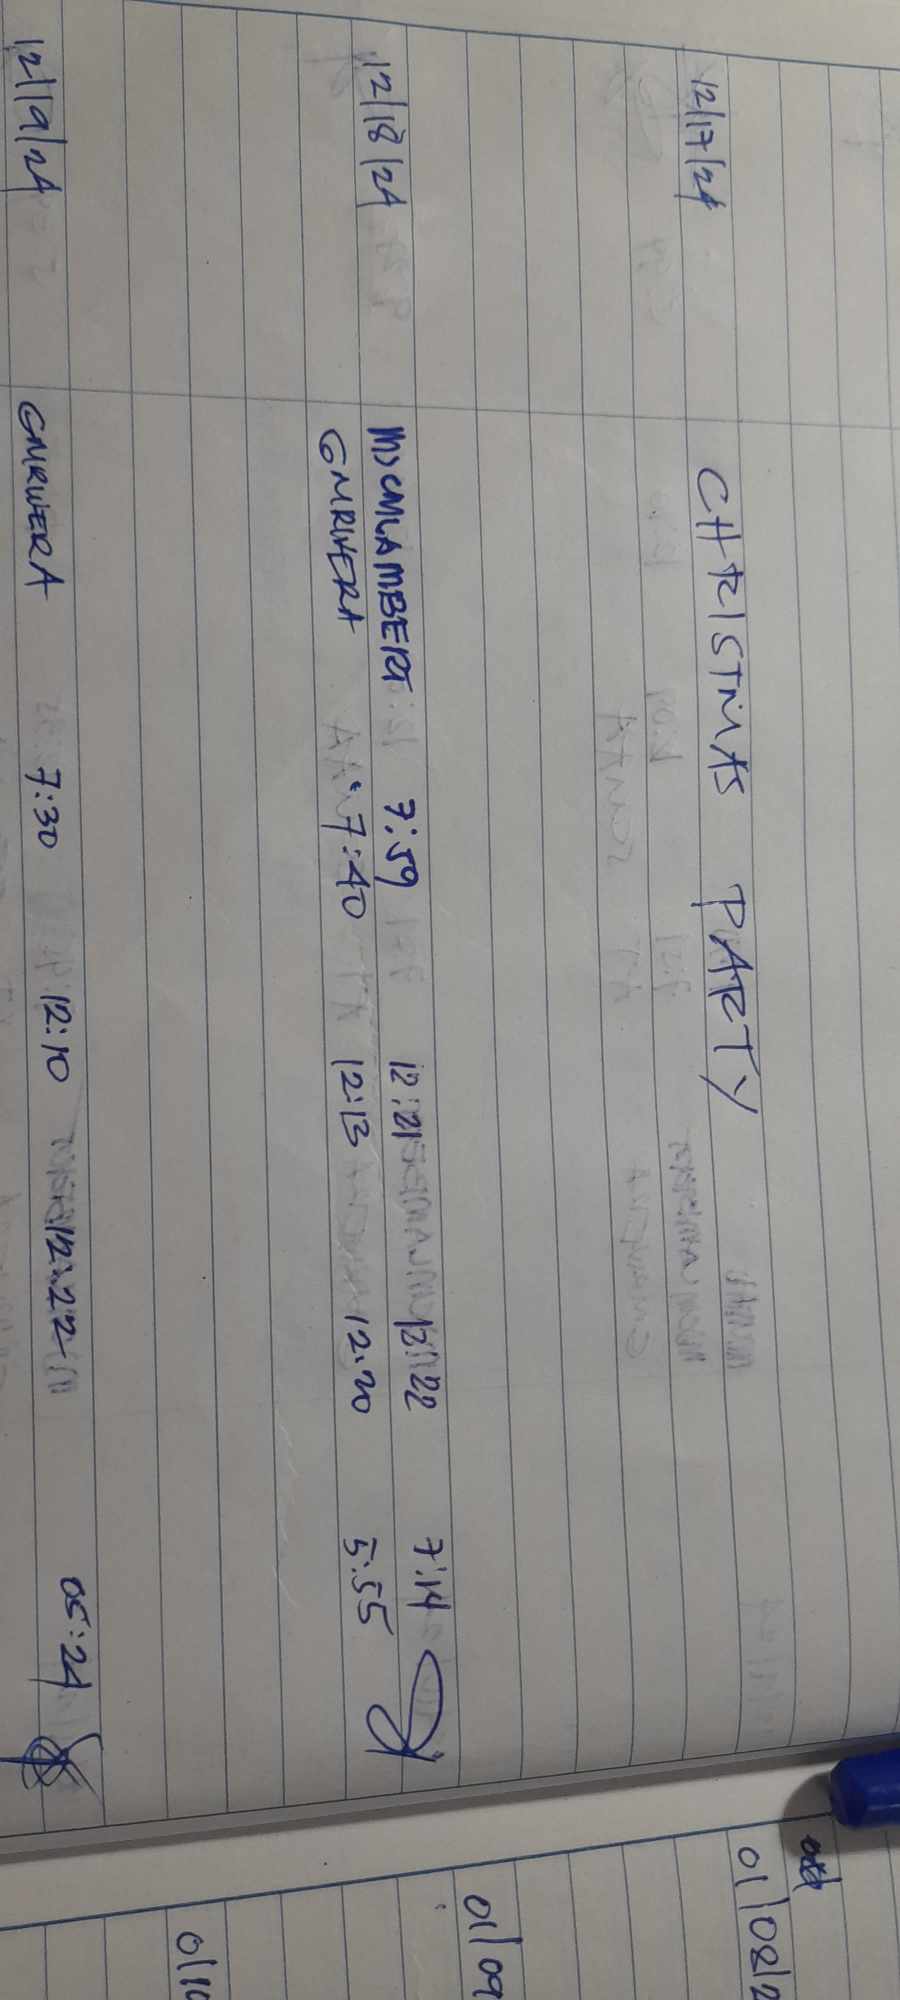 12/17/24 CHRISTMAS PARTY
12/18/24 MJCMLAMBERT 7:59 12:21 12:22 7:14
GMRIVERA 7:40 12:13 12:20 5:55
12/19/24 GMRIVERA 7:30 12:10 12:22 05:24
01/08/2
01/09
01/10